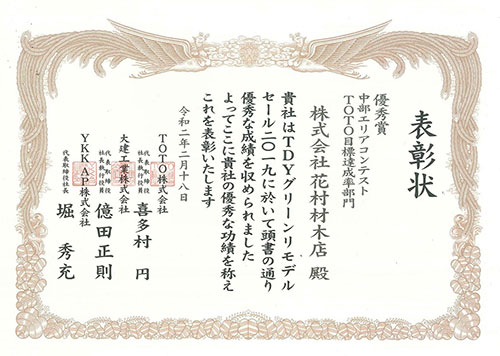 表彰状
優秀賞
中部エリアコンテスト
TOTO目標達成率部門
株式会社花村材木店 殿
貴社はTDYグリーンリモデル
セール二〇一九に於いて頭書の通り
優秀な成績を収められました
よってここに貴社の優秀な功績を称え
これを表彰いたします
令和二年二月十八日
TOTO株式会社
代表取締役
社長執行役員
喜多村 円
大建工業株式会社
代表取締役
社長執行役員
億田正則
YKK AP株式会社
代表取締役社長
堀 秀充